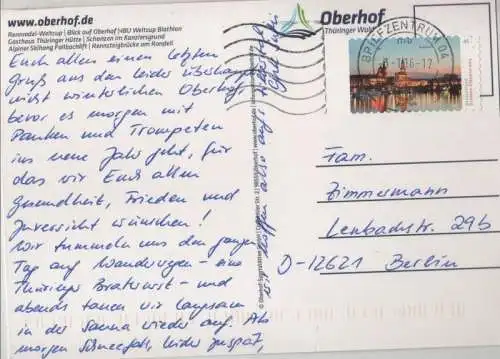 www.oberhof.de
Rennrodel-Weltcup | Blick auf Oberhof | H8U Weltcup Biathlon
Gasthaus Thüringer Hütte | Schanzen im Kanzlersgrund
Alpiner Skihang Fallbachlift | Rennsteigbrücke am Rondell
Oberhof
Thüringer Wald
BRIEFZENTRUM 04
Euch allen einen letzten
Gruß aus dem leider überhaupt
nicht winterlichen Oberhof,
bevor es morgen mit
Pauken und Trompeten
ins neue Jahr geht, für
das wir Euch allen
Gesundheit, Frieden und
Zuversicht wünschen!
Wir tummeln uns den ganzen
Tag auf Wanderwegen - eine
Thüringer Bratwurst - und
abends tauen wir langsam
in der Sauna wieder auf. Ab
morgen Schneefall, leider zu spät,
wir hoffen also auf
Fam.
Zimmermann
Lenbachstr. 29b
D-12621 Berlin